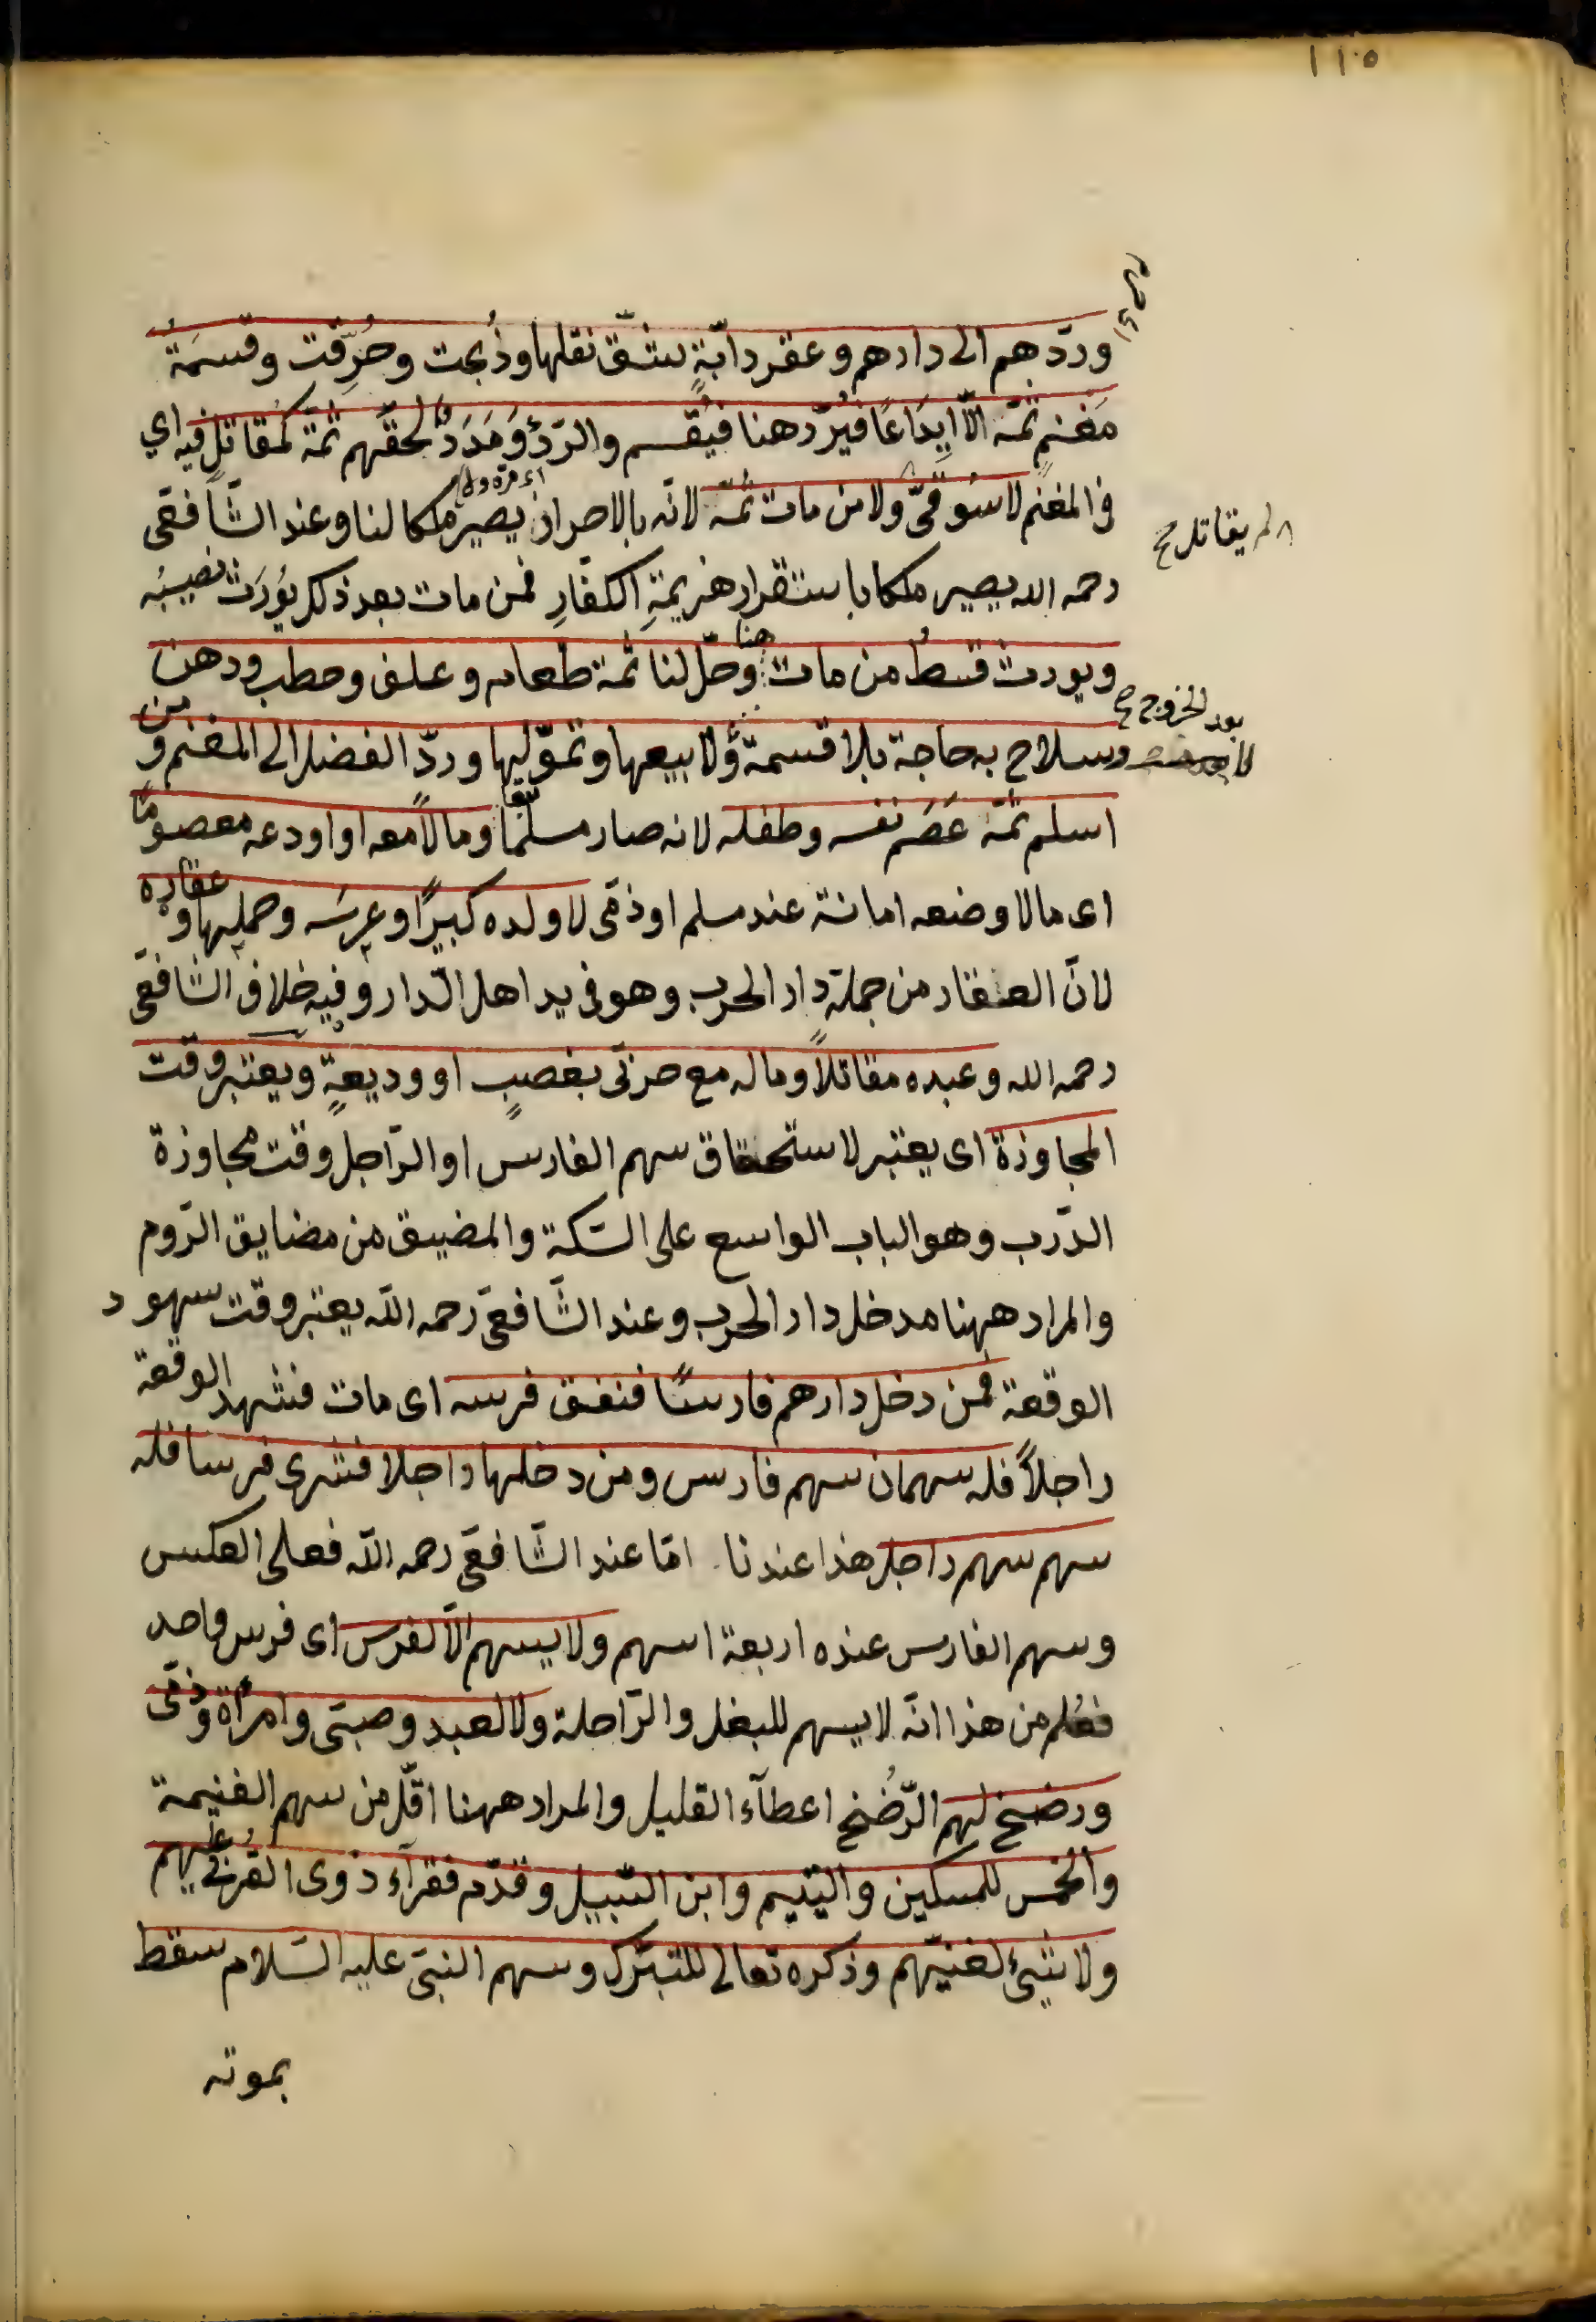 ١١٠٥
وردّهم الى دارهم وعقر دابّةٍ شقّ نقلها وذُبحت وحُرِّقت وقسمَةُ
مَغنمٍ ثمّه الّا ايِدَاعًا فيُردّ هنا فيُقسم والرّدْءُ وَمَدَدٌ لحقَهم ثمّة كمُقاتلٍ فيه اي
في المغنم لا سُوقىّ ولا من مات ثمّه لانّه بالاحراز يصير ملكا لنا وعند الشّافعّى
لم يقاتل صح
رحمه الله يصير ملكا باستقرار هزيمةِ الكفّارِ فمن مات بعد ذكر يُورَث نصيبُه
ويورث قسطُ من مات هنا وحلّ لنا ثمة طعام وعلف وحطب ودهن
وسلاح به حاجة بلا قسمة ولا بيعها وتموّلها وردّ الفضل الى المغنم ومن
بعد الخروج صح
اسلم ثمّه عَصَم نفسه وطفله لانه صار مسلمًا تبعًا ومالًا معه او اودعه معصومًا
اى مالا وضعه امانة عند مسلم او ذمّى لا ولده كبيرًا وعرسَه وحملها وعقاره
لانّ العقار من جملة دار الحرب وهو فى يد اهل الدّار وفيه خلاف الشّافعّى
رحمه الله وعبده مقاتلاً وماله مع حربّى بغصبٍ او وديعةٍ ويعتبر وقت
المجاوزة اى يعتبر لاستحقاق سهم الفارس او الرّاجل وقت مجاوزة
الدّرب وهو الباب الواسع على السّكة والمضيق من مضايق الرّوم
والمراد ههنا مدخل دار الحرب وعند الشّافعّى رحمه اللّه يعتبر وقت سهود
الوقعة فمن دخل دارهم فارسًا فنفق فرسه اى مات فشهد الوقعة
راجلاً فله سهمان سهم فارس ومن دخلها راجلا فشرى فرسا فله
سهم سهم راجل هذا عندنا امّا عند الشّافعّى رحمه اللّه فعلى العكس
وسهم الفارس عنده اربعة اسهم ولا يسهم الّا لفرس اى فرس واحد
فعُلم من هذا انّه لا يسهم للبغل والرّاحلة ولا لعبد وصبىّ وامرأة وذمّى
ورضخ لهم الرّضْخ اعطآء القليل والمراد ههنا اقّل من سهم الغنيمة
والخمس للمسكين واليتيم وابن السّبيل وقدّم فقرآء ذوى القُربى عليهم
ولا شىء لغنيّهم وذكره تعالى للتبرّك وسهم النبىّ عليه السّلام سقط
بموته